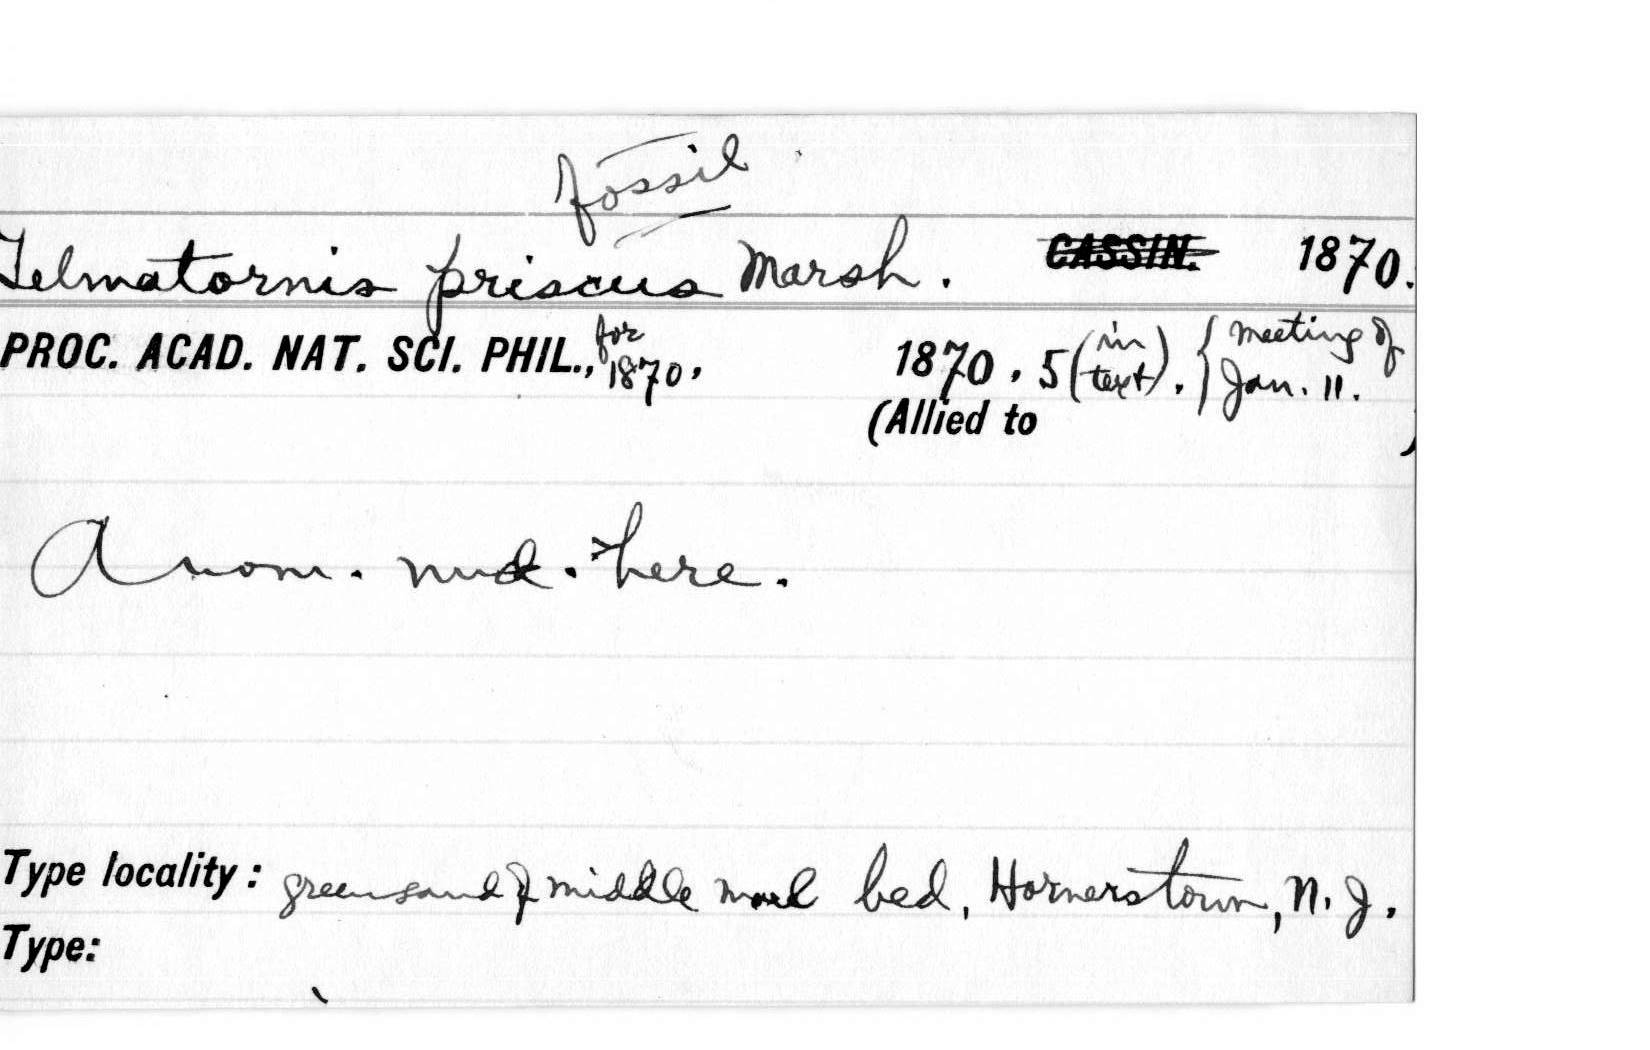 fossil
Telmatornis priscus Marsh. CASSIN. 1870.
PROC. ACAD. NAT. SCI. PHIL., for 1870, 1870. 5 (in text). { Meeting of Jan. 11.
(Allied to )
A nom. nud. here.
Type locality: greensand of middle marl bed, Hornerstown, N. J.
Type: